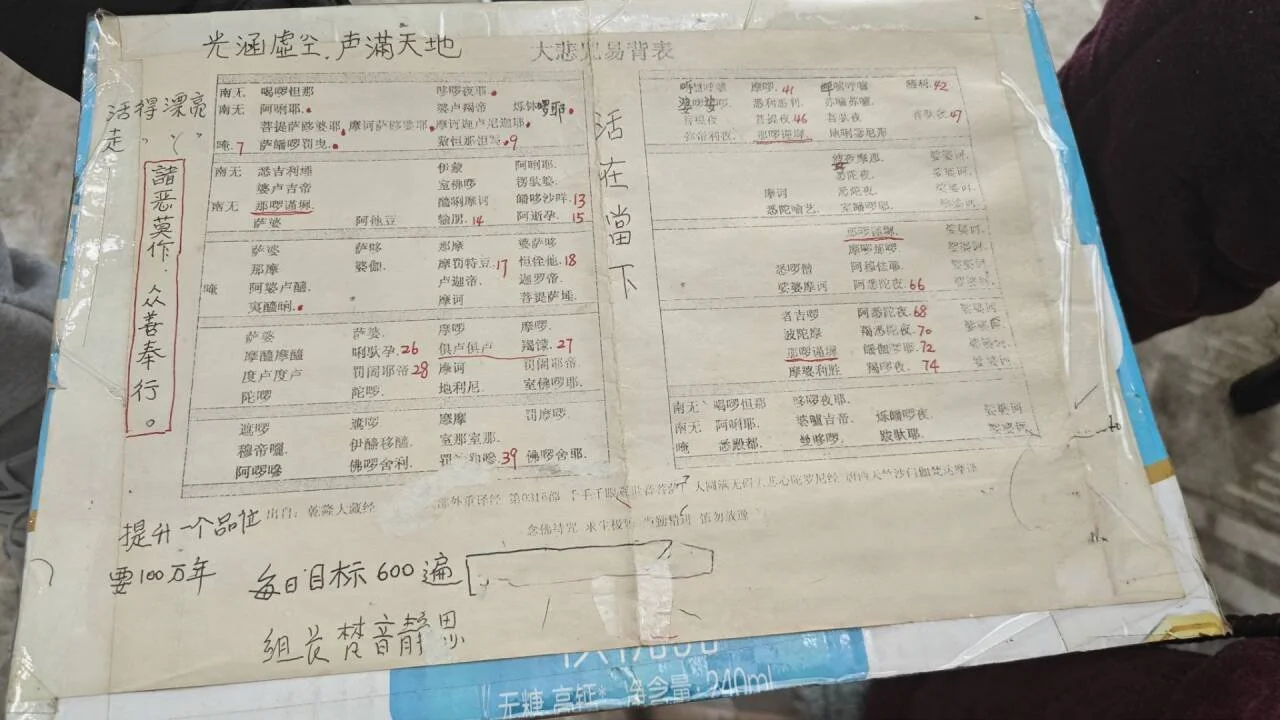 光涵虚空.声满天地
大悲咒易背表
活得漂亮
走
諸恶莫作.众善奉行。
活在當下
南无 喝啰怛那 哆啰夜耶
南无 阿唎耶 婆卢羯帝 烁钵啰耶
菩提萨埵婆耶 摩诃萨埵婆耶 摩诃迦卢尼迦耶
唵 7 萨皤啰罚曳 数怛那怛写 9
南无 悉吉利埵 伊蒙 阿唎耶
婆卢吉帝 室佛啰 楞驮婆
南无 那啰谨墀 醯唎摩诃 皤哆沙咩 13
萨婆 阿他豆 输朋 14 阿逝孕 15
萨婆 萨哆 那摩 婆萨哆
那摩 婆伽 摩罚特豆 17 怛侄他 18
唵 阿婆卢醯 卢迦帝 迦罗帝
夷醯唎 摩诃 菩提萨埵
萨婆 萨婆 摩啰 摩啰
摩醯摩醯 唎驮孕 26 俱卢俱卢 羯懞 27
度卢度卢 罚阇耶帝 28 摩诃 罚阇耶帝
陀啰 陀啰 地利尼 室佛啰耶
遮啰 遮啰 摩摩 罚摩啰
穆帝囇 伊醯移醯 室那室那
阿啰嘇 佛啰舍利 39 佛啰舍耶
摩啰 41 42
悉利悉利 苏嚧苏嚧
菩提夜 菩提夜 46 菩驮夜 菩驮夜 47
弥帝利夜 那啰谨墀 地唎瑟尼那
波夜摩那 娑婆诃
悉陀夜 娑婆诃
摩诃 悉陀夜 娑婆诃
悉陀喻艺 室皤啰耶 娑婆诃
那啰谨墀 娑婆诃
摩啰那啰 娑婆诃
悉啰僧 阿穆佉耶 娑婆诃
娑婆摩诃 阿悉陀夜 66 娑婆诃
者吉啰 阿悉陀夜 68 娑婆诃
波陀摩 羯悉陀夜 70 娑婆诃
那啰谨墀 皤伽啰耶 72 娑婆诃
摩婆利胜 羯啰夜 74 娑婆诃
南无 喝啰怛那 哆啰夜耶
南无 阿唎耶 婆嚧吉帝 烁皤啰夜 娑婆诃
唵 悉殿都 漫哆啰 跋驮耶 娑婆诃
出自:乾隆大藏经 部外重译经 第0316部
念佛持咒 求生极乐
提升一个品位
要100万年
每日目标600遍
组长 梵音静思
无糖 高钙* 净含量:240ml